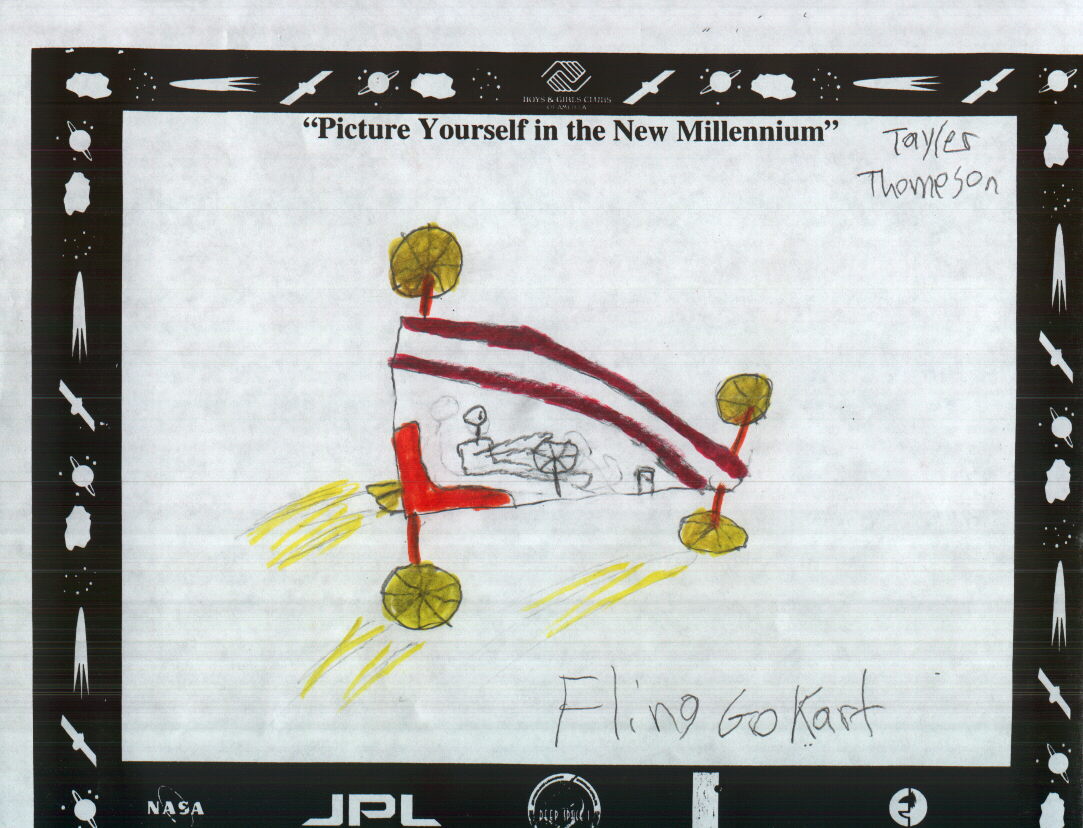 BOYS & GIRLS CLUBS
OF AMERICA
“Picture Yourself in the New Millennium”
Tayler
Thomeson
Fling Go Kart
NASA
JPL
DEEP SPACE 1